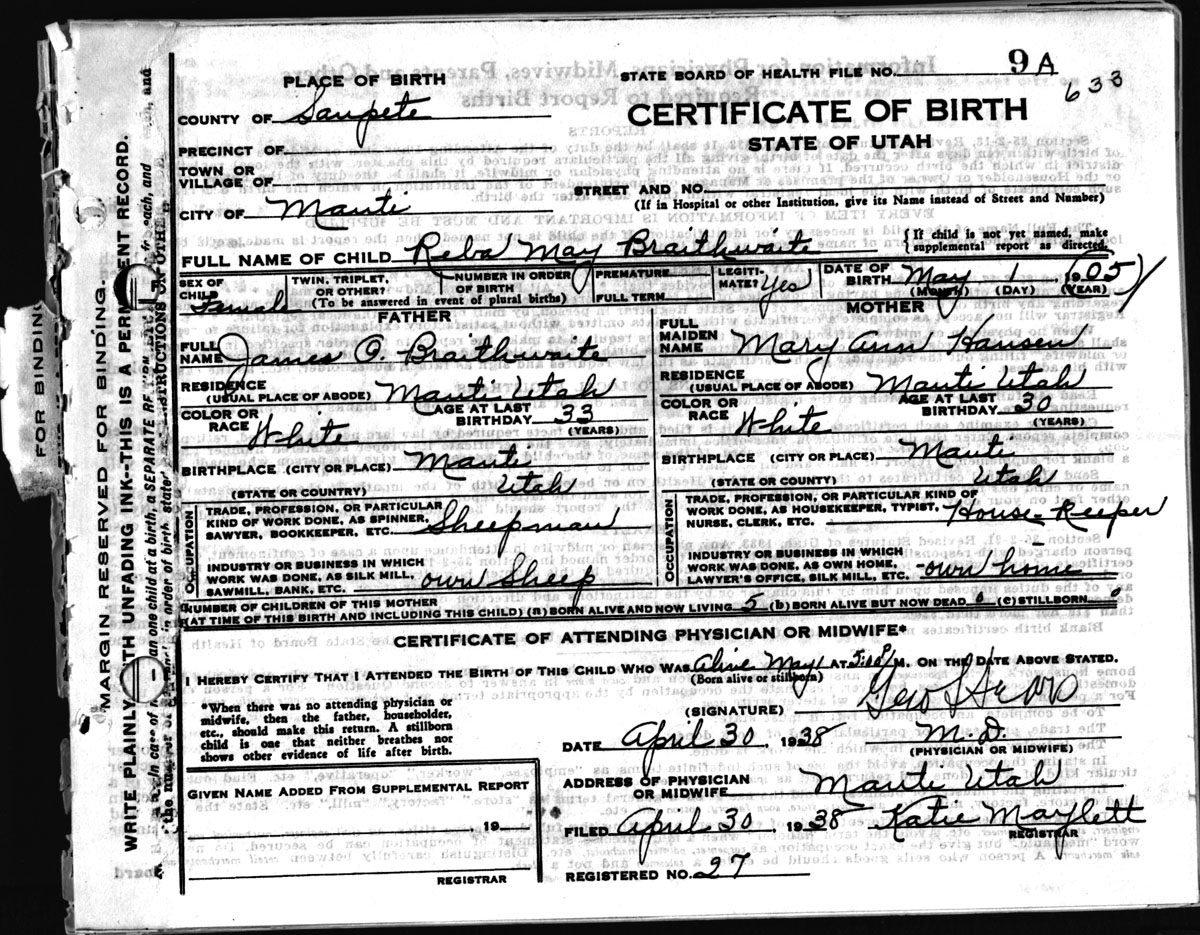 PLACE OF BIRTH
STATE BOARD OF HEALTH FILE NO. 9A
633
COUNTY OF Sanpete
CERTIFICATE OF BIRTH
STATE OF UTAH
PRECINCT OF
TOWN OR VILLAGE OF
STREET AND NO.
(If in Hospital or other Institution, give its Name instead of Street and Number)
CITY OF Manti
FULL NAME OF CHILD Reba May Braithwaite
{If child is not yet named, make supplemental report as directed.
SEX OF CHILD Female
TWIN, TRIPLET, OR OTHER?
NUMBER IN ORDER OF BIRTH
(To be answered in event of plural births)
PREMATURE
FULL TERM
LEGITIMATE? Yes
DATE OF BIRTH May 1 1905
(MONTH) (DAY) (YEAR)
FATHER
FULL NAME James O. Braithwaite
RESIDENCE (USUAL PLACE OF ABODE) Manti Utah
COLOR OR RACE White
AGE AT LAST BIRTHDAY 33 (YEARS)
BIRTHPLACE (CITY OR PLACE) Manti
(STATE OR COUNTRY) Utah
OCCUPATION
TRADE, PROFESSION, OR PARTICULAR KIND OF WORK DONE, AS SPINNER, SAWYER, BOOKKEEPER, ETC. Sheepman
INDUSTRY OR BUSINESS IN WHICH WORK WAS DONE, AS SILK MILL, SAWMILL, BANK, ETC. own Sheep
MOTHER
FULL MAIDEN NAME Mary Ann Hansen
RESIDENCE (USUAL PLACE OF ABODE) Manti Utah
COLOR OR RACE White
AGE AT LAST BIRTHDAY 30 (YEARS)
BIRTHPLACE (CITY OR PLACE) Manti
(STATE OR COUNTY) Utah
OCCUPATION
TRADE, PROFESSION, OR PARTICULAR KIND OF WORK DONE, AS HOUSEKEEPER, TYPIST, NURSE, CLERK, ETC. House Keeper
INDUSTRY OR BUSINESS IN WHICH WORK WAS DONE, AS OWN HOME, LAWYER'S OFFICE, SILK MILL, ETC. own home
NUMBER OF CHILDREN OF THIS MOTHER
(AT TIME OF THIS BIRTH AND INCLUDING THIS CHILD) (a) BORN ALIVE AND NOW LIVING 5 (b) BORN ALIVE BUT NOW DEAD 0 (c) STILLBORN 0
CERTIFICATE OF ATTENDING PHYSICIAN OR MIDWIFE*
I HEREBY CERTIFY THAT I ATTENDED THE BIRTH OF THIS CHILD WHO WAS Alive May 1 AT P M. ON THE DATE ABOVE STATED.
(Born alive or stillborn)
*When there was no attending physician or
midwife, then the father, householder,
etc., should make this return. A stillborn
child is one that neither breathes nor
shows other evidence of life after birth.
(SIGNATURE) Geo
DATE April 30, 1938 M.D.
(PHYSICIAN OR MIDWIFE)
GIVEN NAME ADDED FROM SUPPLEMENTAL REPORT
, 19
REGISTRAR
ADDRESS OF PHYSICIAN OR MIDWIFE Manti Utah
FILED April 30 1938 Katie Maylett
REGISTRAR
REGISTERED NO. 27
FOR BINDING
MARGIN RESERVED FOR BINDING.
WRITE PLAINLY WITH UNFADING INK--THIS IS A PERMANENT RECORD.